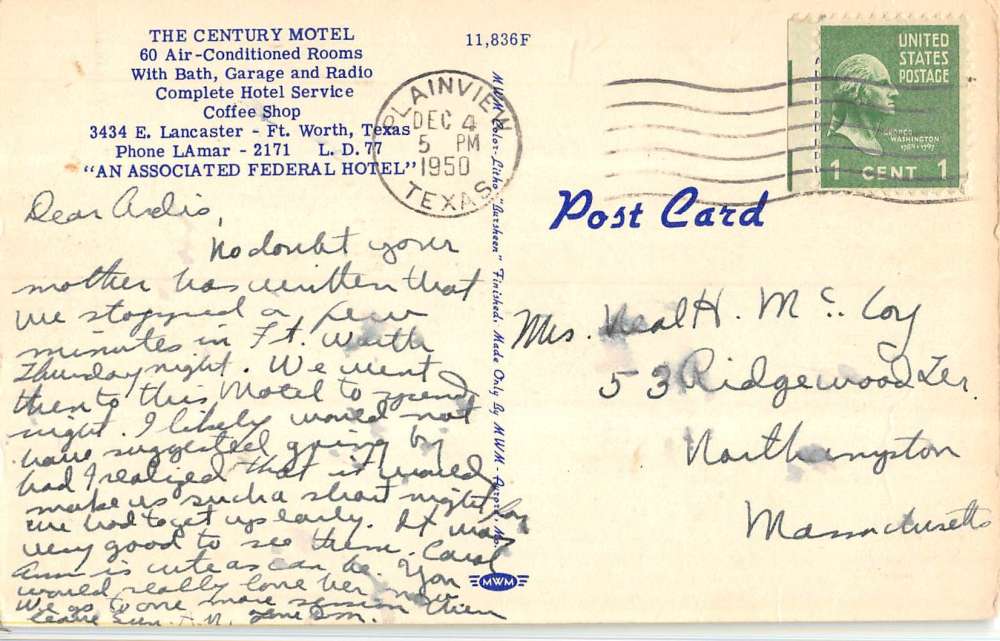 THE CENTURY MOTEL
60 Air-Conditioned Rooms
With Bath, Garage and Radio
Complete Hotel Service
Coffee Shop
3434 E. Lancaster - Ft. Worth, Texas
Phone LAmar - 2171 L. D. 77
"AN ASSOCIATED FEDERAL HOTEL"
11,836F
PLAINVIEW
DEC 4
5 PM
1950
TEXAS
UNITED
STATES
POSTAGE
WASHINGTON
1789-1797
1 CENT 1
Post Card
MWM Color-Litho "Cursheen" Finished. Made Only By MWM - Aurora, Mo.
MWM
Dear Ardis,
No doubt your
mother has written that
we stopped a few
minutes in Ft. Worth
Thursday night. We went
then to this Motel to spend
night. I likely would not
have suggested going by
had I realized that it would
make us such a short night for
we had to get up early. It was
very good to see them. Carol
Ann is cute as can be. You
would really love her now
We go to one more session then
leave Sun.
Mrs. Neal H. Mc. Coy
53 Ridgewood Ter.
Northampton
Massachusetts